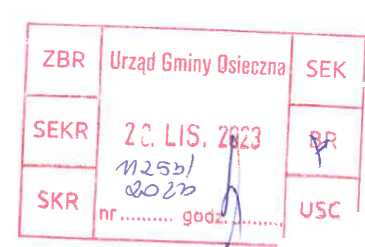 ZBR Urząd Gminy Osieczna SEK
SEKR 2 . LIS. 2023 BR
SKR nr .......... godz. .......... USC